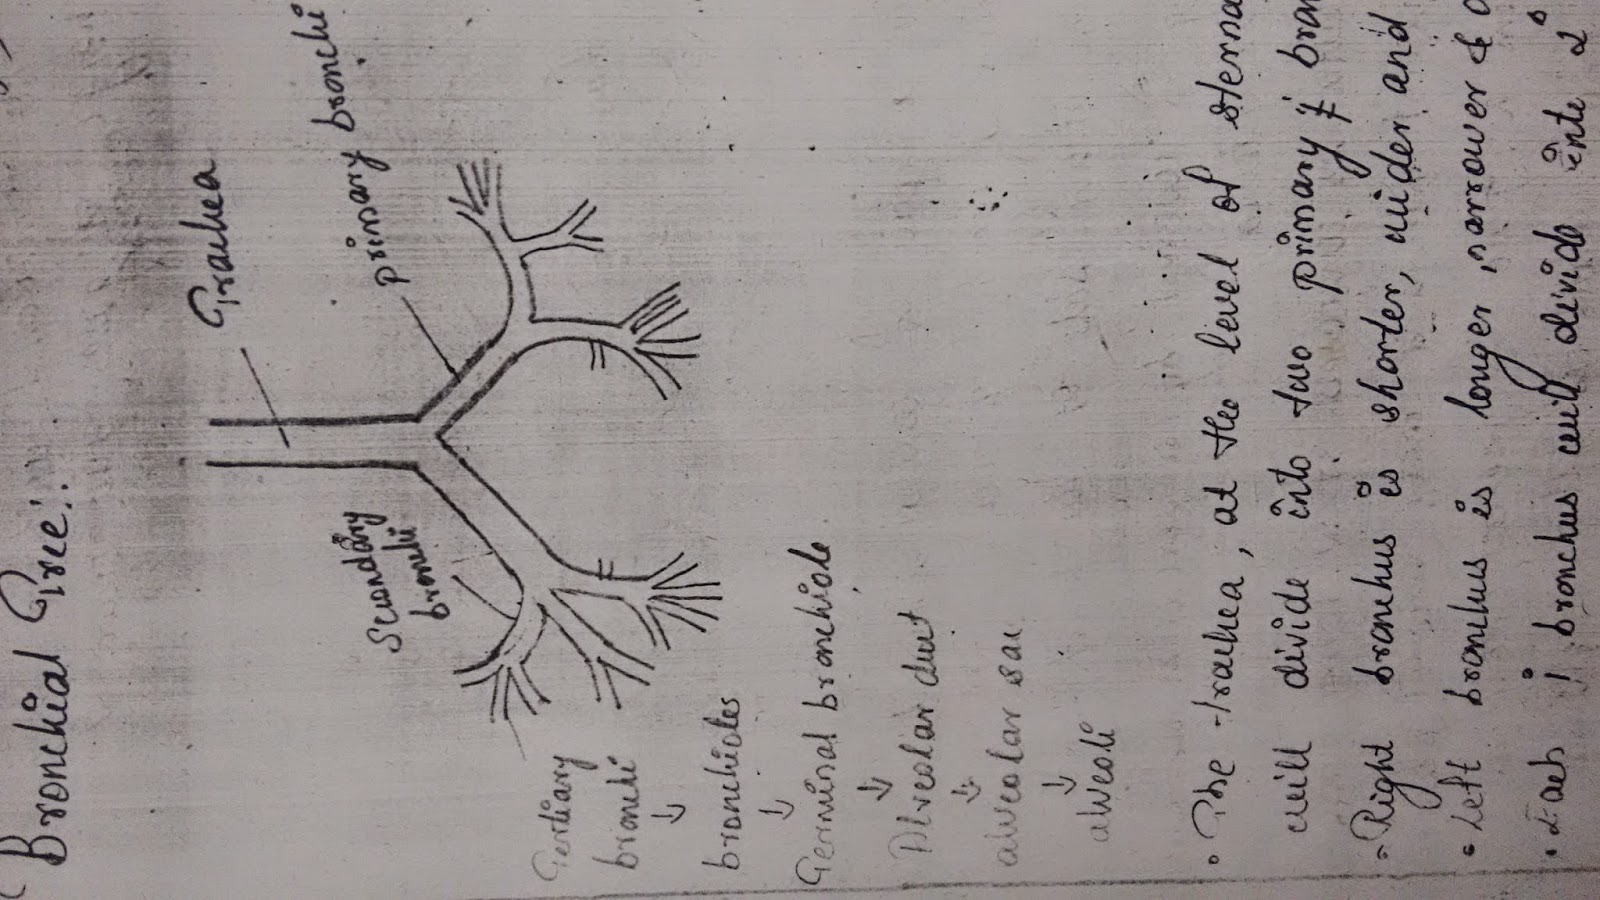 Bronchial Tree:
Trachea
primary bronchi
Secondary
bronchi
Tertiary
bronchi
↓
bronchioles
↓
Terminal bronchiole
↓
Alveolar duct
↓
alveolar sac
↓
alveoli
• The trachea, at the level of sterna
will divide into two primary bran
• Right bronchus is shorter, wider and
• Left bronchus is longer, narrower &
• Each 1° bronchus will divide into 2°